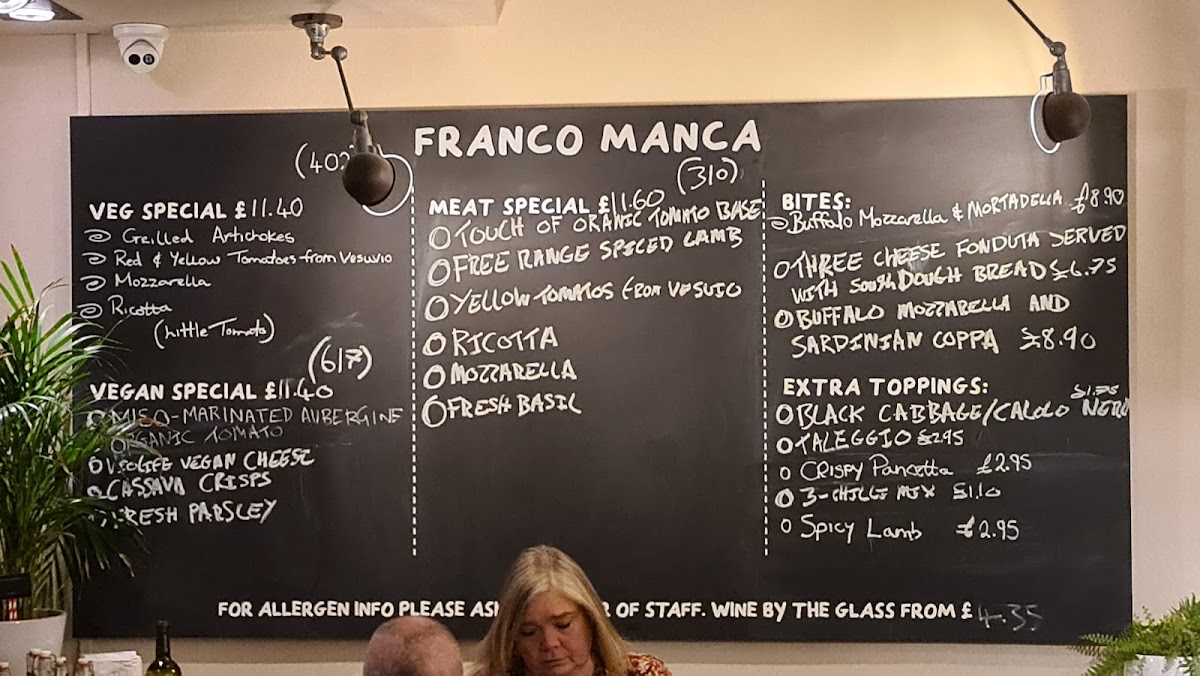 FRANCO MANCA
VEG SPECIAL £11.40
Grilled Artichokes
Red & Yellow Tomatoes from Vesuvio
Mozzarella
Ricotta
(Little Tomato)
(617)
VEGAN SPECIAL £11.40
MISO-MARINATED AUBERGINE
ORGANIC TOMATO
VIOLIFE VEGAN CHEESE
CASSAVA CRISPS
FRESH PARSLEY
(310)
MEAT SPECIAL £11.60
TOUCH OF ORANIC TOMATO BASE
FREE RANGE SPICED LAMB
YELLOW TOMATOS FROM VESUVIO
RICOTTA
MOZZARELLA
FRESH BASIL
BITES:
Buffalo Mozzarella & MORTADELLA £8.90
THREE CHEESE FONDUTA SERVED
WITH SOURDOUGH BREAD £6.75
BUFFALO MOZZARELLA AND
SARDINIAN COPPA £8.90
EXTRA TOPPINGS:
£1.75
BLACK CABBAGE/CALOLO NERO
TALEGGIO £2.95
CRISPY Pancetta £2.95
3-CHILLI MIX £1.10
Spicy Lamb £2.95
FOR ALLERGEN INFO PLEASE OF STAFF. WINE BY THE GLASS FROM £4.35